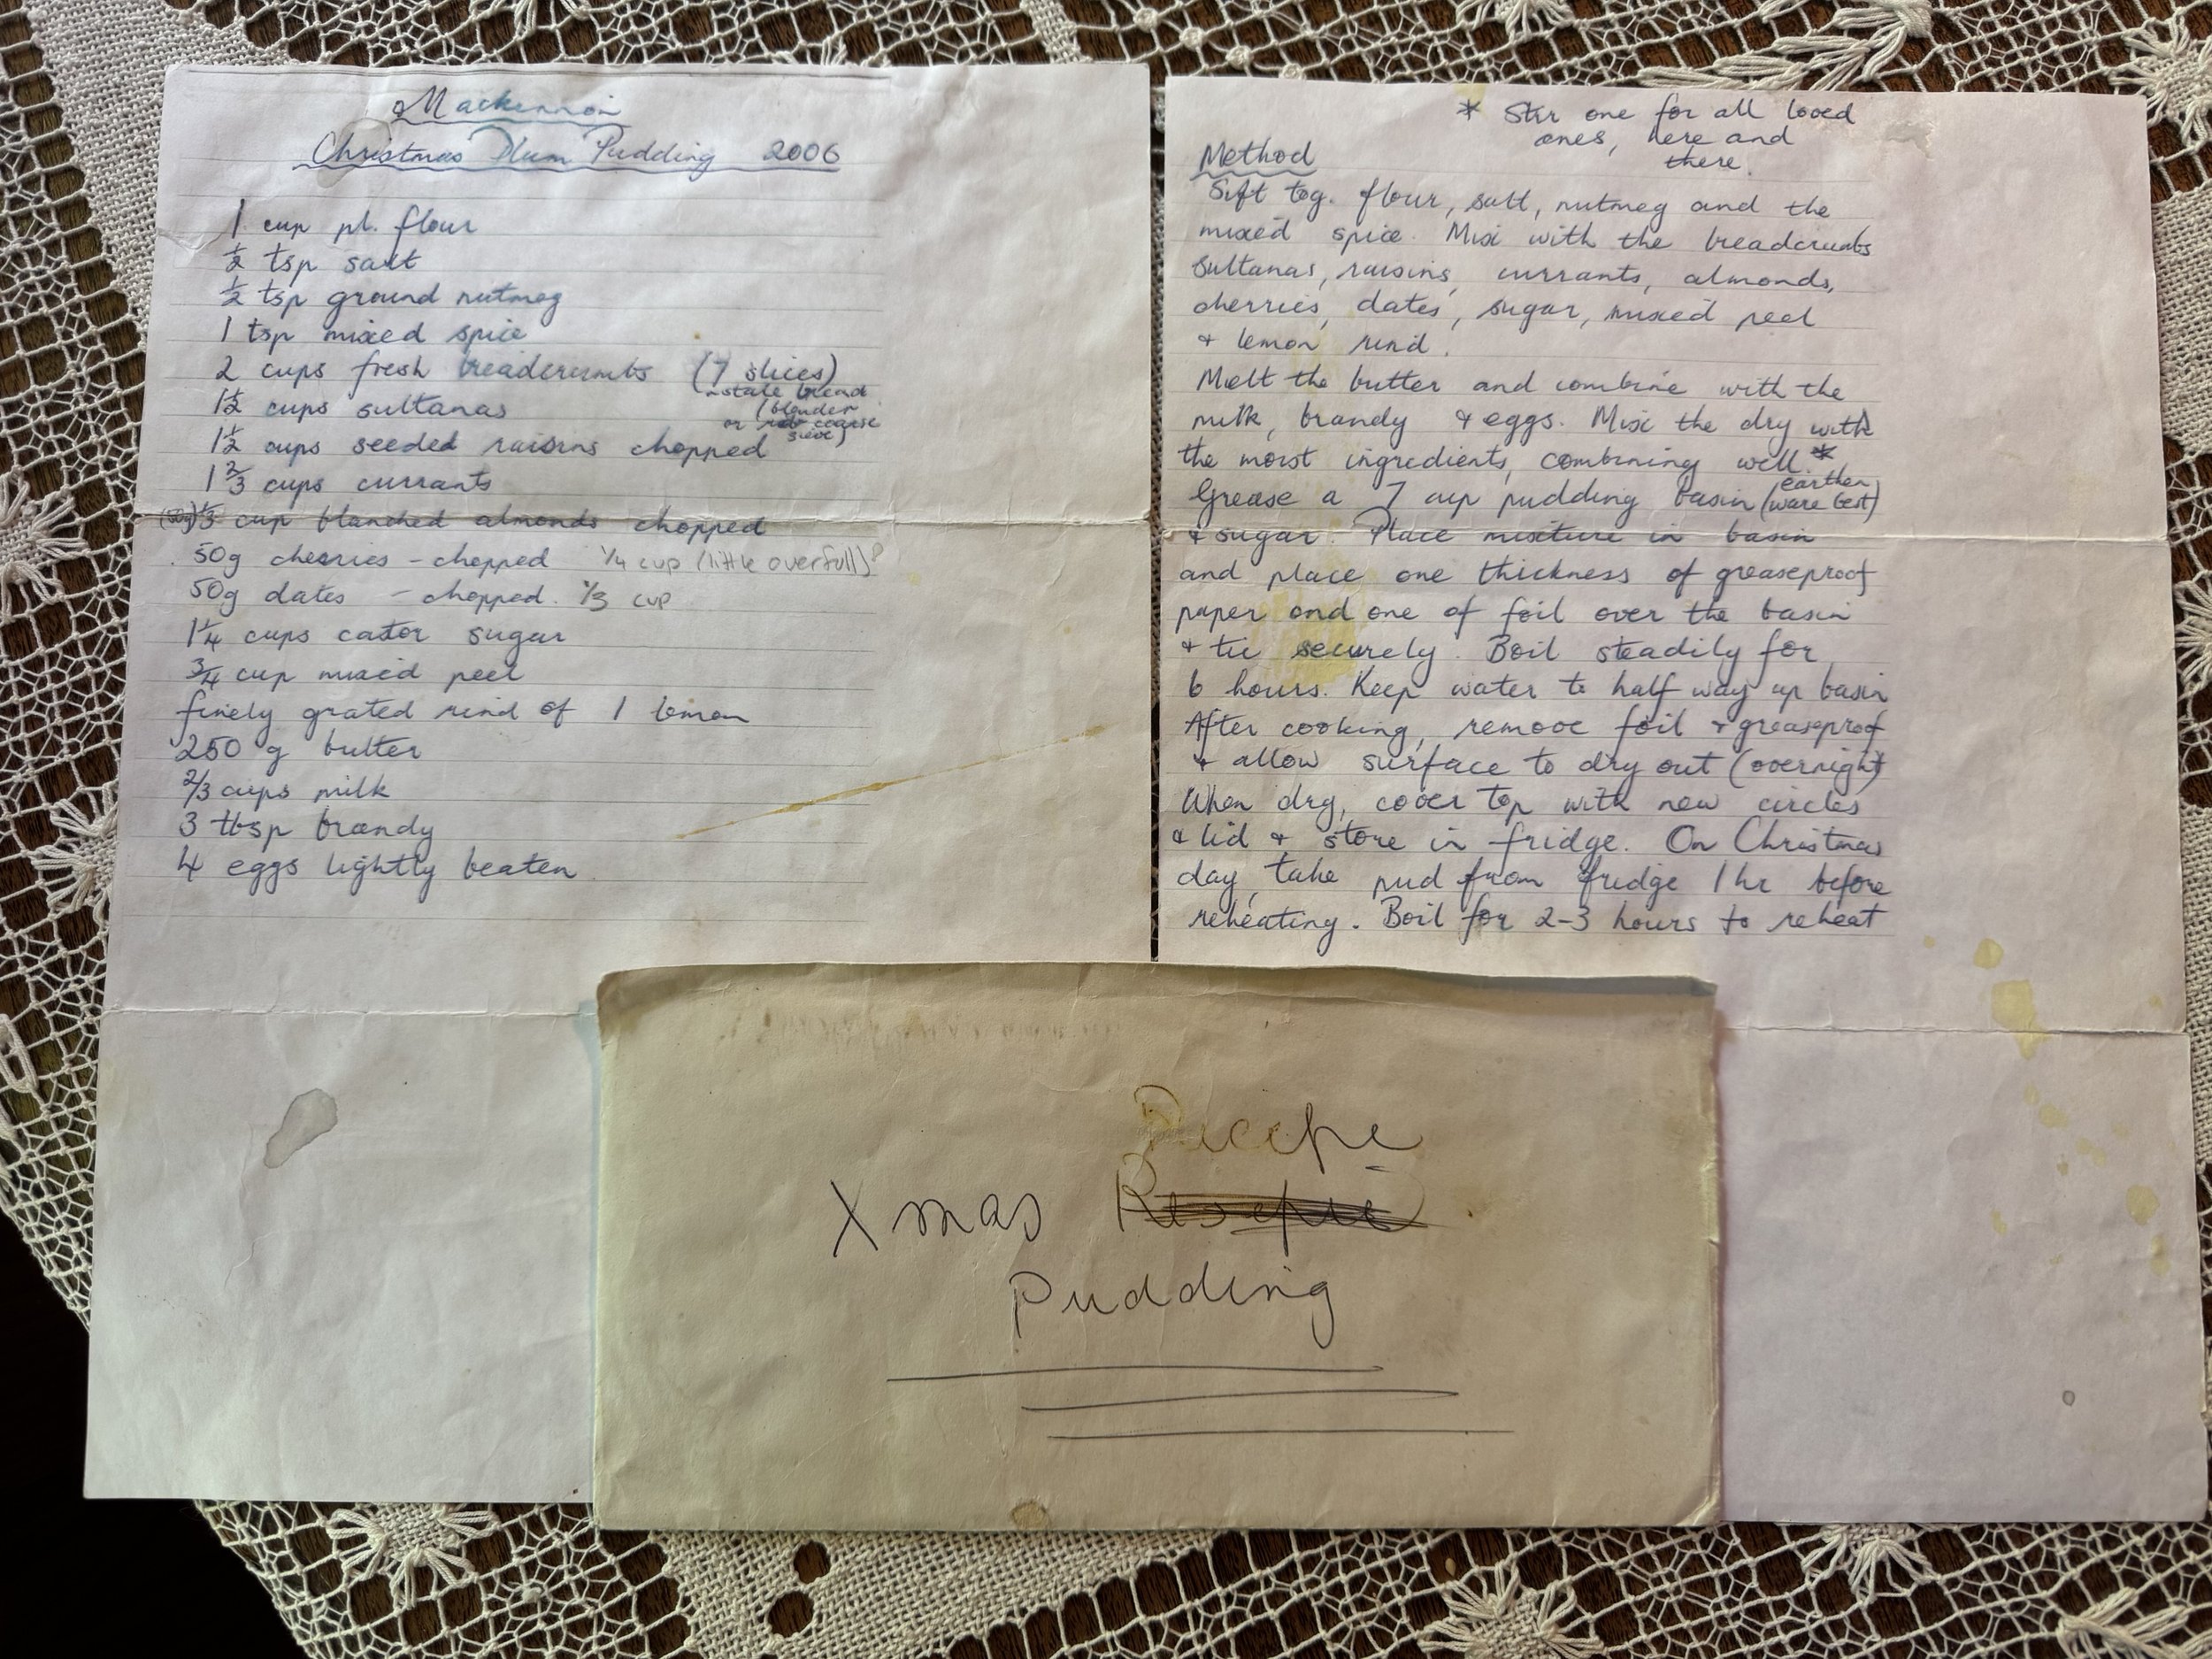 Mackinnon
Christmas Plum Pudding 2006
1 cup pl. flour
½ tsp salt
½ tsp ground nutmeg
1 tsp mixed spice
2 cups fresh breadcrumbs (7 slices)
stale bread
(blender
or rub coarse
sieve)
1½ cups sultanas
1½ cups seeded raisins chopped
1⅔ cups currants
(50g) ⅓ cup blanched almonds chopped
50g cherries - chopped ¼ cup (little overfull)
50g dates - chopped. ⅓ cup
1¼ cups castor sugar
¾ cup mixed peel
finely grated rind of 1 lemon
250 g butter
2/3 cups milk
3 tbsp brandy
4 eggs lightly beaten
* Stir one for all loved
ones, here and
there.
Method
Sift tog. flour, salt, nutmeg and the
mixed spice. Mix with the breadcrumbs
sultanas, raisins, currants, almonds,
cherries, dates, sugar, mixed peel
+ lemon rind.
Melt the butter and combine with the
milk, brandy + eggs. Mix the dry with
the moist ingredients, combining well.*
Grease a 7 cup pudding basin (earthen
ware best)
+ sugar. Place mixture in basin
and place one thickness of greaseproof
paper and one of foil over the basin
+ tie securely. Boil steadily for
6 hours. Keep water to half way up basin
After cooking, remove foil + greaseproof
+ allow surface to dry out (overnight)
When dry, cover top with new circles
& lid + store in fridge. On Christmas
day, take pud from fridge 1 hr before
reheating. Boil for 2-3 hours to reheat
Recipe
Xmas Resepie
Pudding